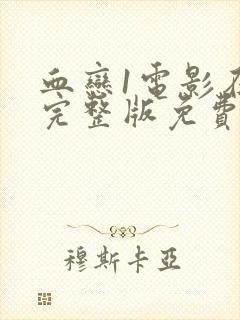 血戀1電影在
完整版免費
穆斯卡亞